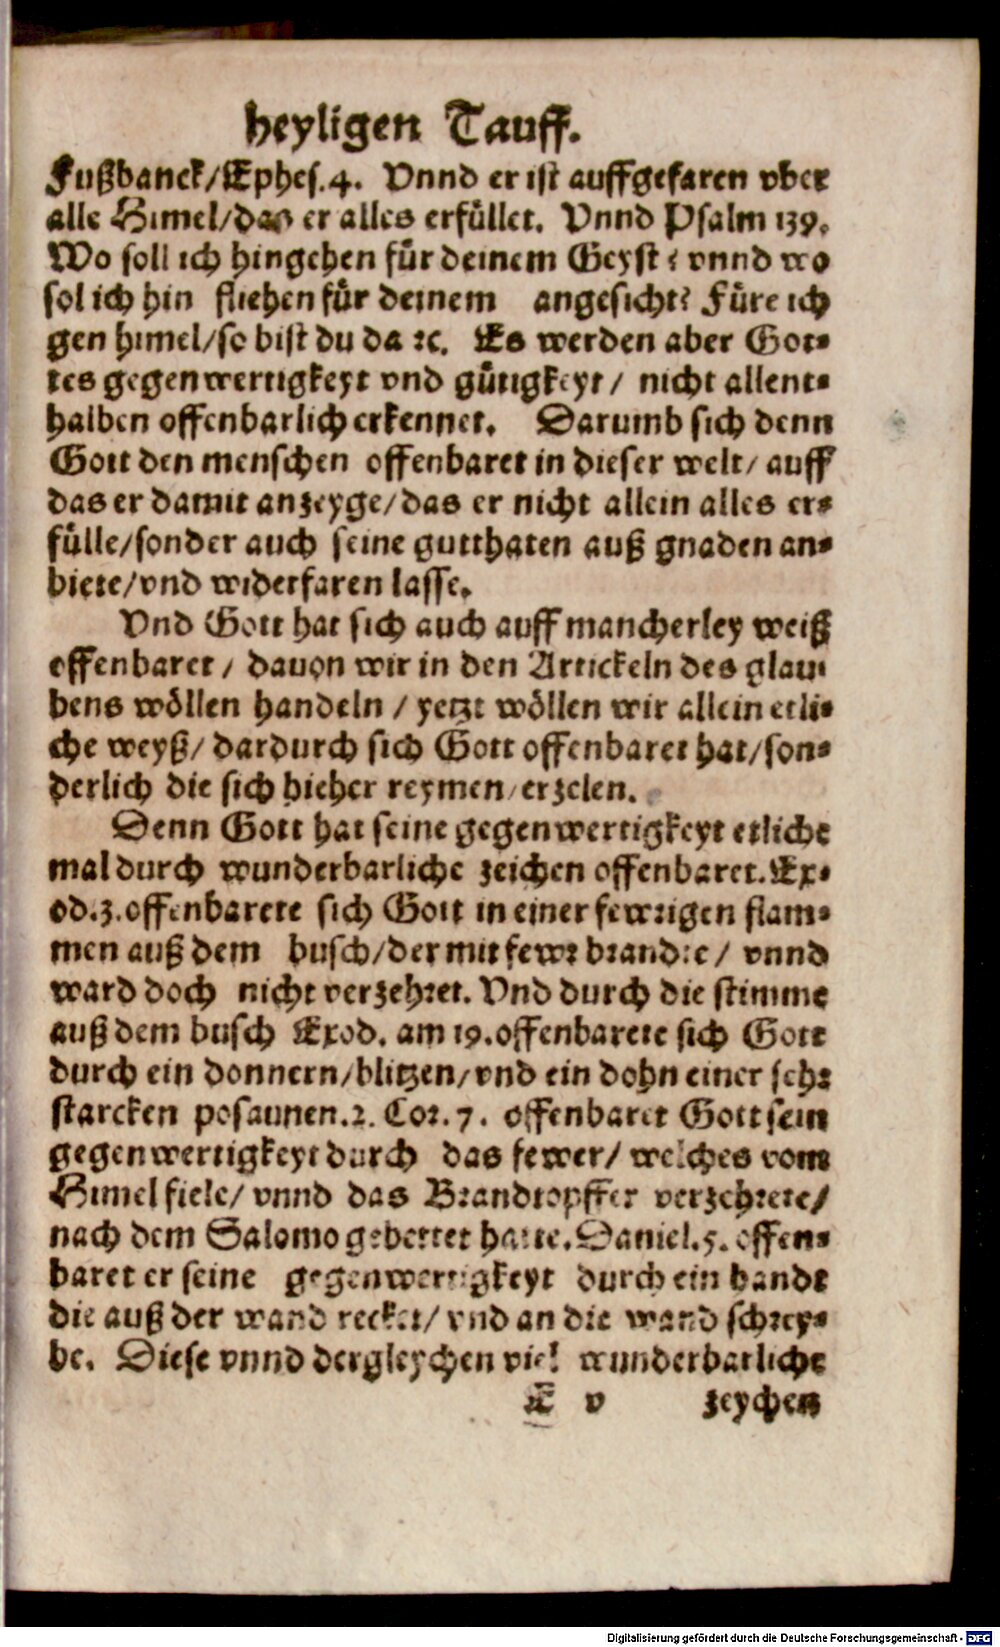 heyligen Tauff.
Fußbanck/Ephes.4. Vnnd er ist auffgefaren vber
alle Himel/das er alles erfüllet. Vnnd Psalm 139.
Wo soll ich hingehen für deinem Geyst? vnnd wo
sol ich hin fliehen für deinem angesicht? Füre ich
gen himel/so bist du da ꝛc. Es werden aber Got⸗
tes gegenwertigkeyt vnd gütigkeyt/ nicht allent⸗
halben offenbarlich erkennet. Darumb sich denn
Gott den menschen offenbaret in dieser welt/ auff
das er damit anzeyge/das er nicht allein alles er⸗
fülle/sonder auch seine gutthaten auß gnaden an⸗
biete/vnd widerfaren lasse.
Vnd Gott hat sich auch auff mancherley weiß
offenbaret/ dauon wir in den Artickeln des glau⸗
bens wöllen handeln/ yetzt wöllen wir allein etli⸗
che weyß/ dardurch sich Gott offenbaret hat/son⸗
derlich die sich hieher reymen/erzelen.
Denn Gott hat seine gegenwertigkeyt etliche
mal durch wunderbarliche zeichen offenbaret. Ex⸗
od.3.offenbarete sich Gott in einer fewrigen flam⸗
men auß dem busch/der mit fewr brandte/ vnnd
ward doch nicht verzehret. Vnd durch die stimme
auß dem busch Exod. am 19.offenbarete sich Gott
durch ein donnern/blitzen/vnd ein dohn einer sehr
starcken posaunen.2. Cor.7. offenbaret Gott sein
gegenwertigkeyt durch das fewer/ welches vom
Himel fiele/ vnnd das Brandtopffer verzehrete/
nach dem Salomo gebettet hatte.Daniel.5.offen⸗
baret er seine gegenwertigkeyt durch ein handt
die auß der wand recket/ vnd an die wand schrey⸗
be. Diese vnnd dergleychen viel wunderbarliche
E v zeychen
Digitalisierung gefördert durch die Deutsche Forschungsgemeinschaft - DFG